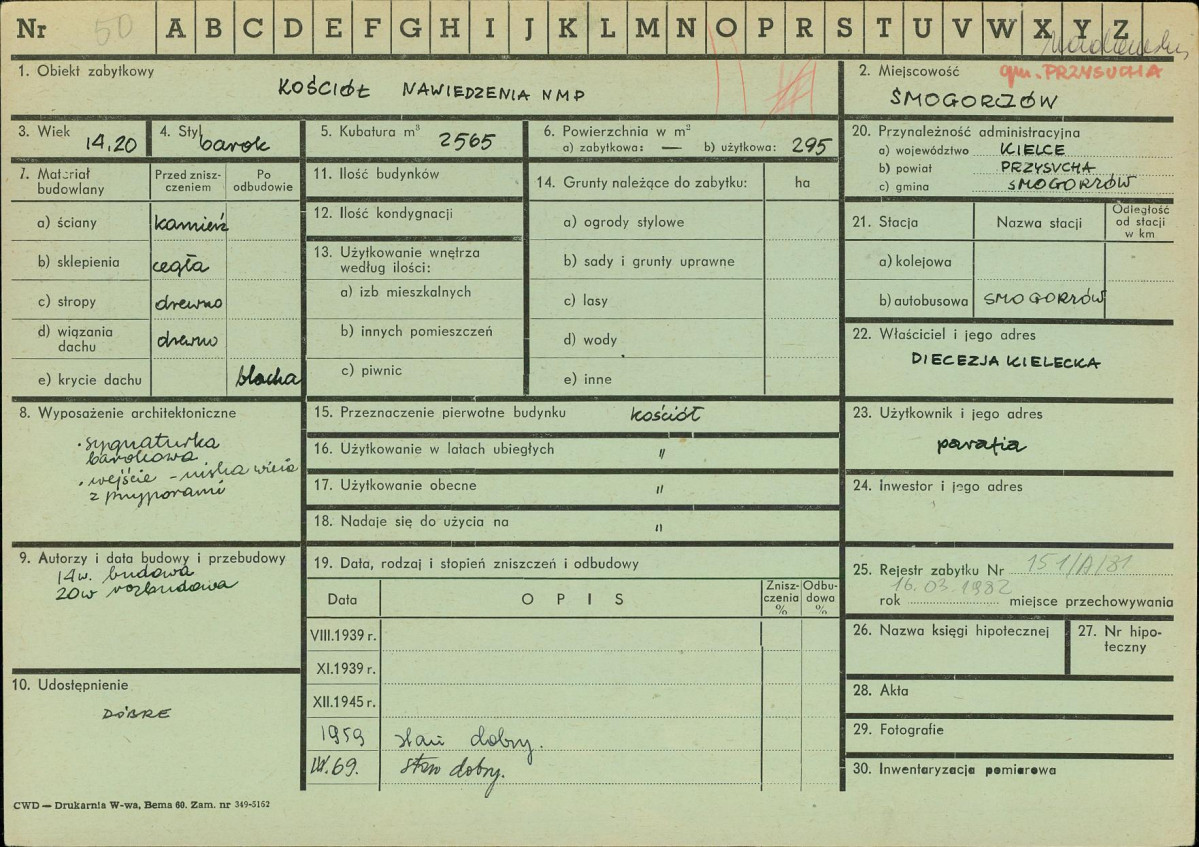 Nr 50 A B C D E F G H I J K L M N O P R S T U V W X Y Z
1. Obiekt zabytkowy
KOŚCIÓŁ NAWIEDZENIA NMP
2. Miejscowość gm. PRZYSUCHA
SMOGORZÓW
3. Wiek 14,20
4. Styl barok
5. Kubatura m³ 2565
6. Powierzchnia w m²
a) zabytkowa: — b) użytkowa: 295
7. Materiał budowlany
Przed zniszczeniem
Po odbudowie
a) ściany kamień
b) sklepienia cegła
c) stropy drewno
d) wiązania dachu drewno
e) krycie dachu blacha
8. Wyposażenie architektoniczne
· sygnaturka
barokowa
· wejście – niska wieża
z przyporami
9. Autorzy i data budowy i przebudowy
14w. budowa
20w rozbudowa
10. Udostępnienie
DOBRE
11. Ilość budynków
12. Ilość kondygnacji
13. Użytkowanie wnętrza
według ilości:
a) izb mieszkalnych
b) innych pomieszczeń
c) piwnic
14. Grunty należące do zabytku: ha
a) ogrody stylowe
b) sady i grunty uprawne
c) lasy
d) wody
e) inne
15. Przeznaczenie pierwotne budynku kościół
16. Użytkowanie w latach ubiegłych "
17. Użytkowanie obecne "
18. Nadaje się do użycia na "
19. Data, rodzaj i stopień zniszczeń i odbudowy
Data OPIS Zniszczenia % Odbudowa %
VIII.1939 r.
XI.1939 r.
XII.1945 r.
1959 stan dobry.
69. stan dobry.
20. Przynależność administracyjna
a) województwo KIELCE
b) powiat PRZYSUCHA
c) gmina SMOGORZÓW
21. Stacja Nazwa stacji Odległość od stacji w km
a) kolejowa
b) autobusowa SMOGORZÓW
22. Właściciel i jego adres
DIECEZJA KIELECKA
23. Użytkownik i jego adres
parafia
24. Inwestor i jego adres
25. Rejestr zabytku Nr 151/A/81
16.03.1982
rok miejsce przechowywania
26. Nazwa księgi hipotecznej
27. Nr hipoteczny
28. Akta
29. Fotografie
30. Inwentaryzacja pomiarowa
CWD — Drukarnia W-wa, Bema 60. Zam. nr 349-5162